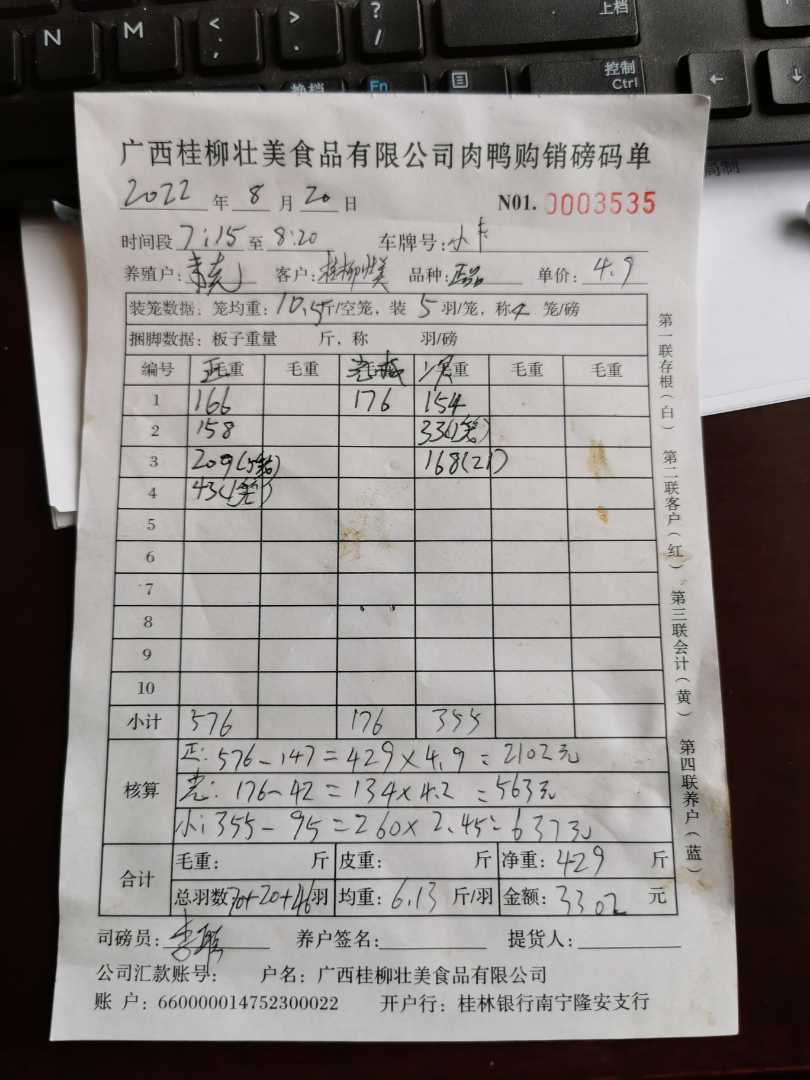 N M < , > . ? / 上档
换档 Fn 控制 Ctrl ← ↓
广西桂柳壮美食品有限公司肉鸭购销磅码单
2022 年 8 月 20 日 N01. 0003535
时间段 7:15 至 8:20 车牌号: 小卡
养殖户: 客户: 桂柳壮美 品种: 正品 单价: 4.9
装笼数据: 笼均重: 10.5斤/空笼, 装 5 羽/笼, 称4 笼/磅
捆脚数据: 板子重量 斤, 称 羽/磅
编号 正毛重 毛重 毛重 次毛重 毛重 毛重
1 166 176 154
2 158 33(1笼)
3 209(5笼) 168(21)
4 43(1笼)
5
6
7
8
9
10
小计 576 176 355
核算 正: 576-147=429×4.9=2102元
光: 176-42=134×4.2=563元
小: 355-95=260×2.45=637元
合计 毛重: 斤 皮重: 斤 净重: 429 斤
总羽数70+20+46羽 均重: 6.13 斤/羽 金额: 3302 元
司磅员: 养户签名: 提货人:
公司汇款账号: 户名: 广西桂柳壮美食品有限公司
账 户: 660000014752300022 开户行: 桂林银行南宁隆安支行
第一联存根(白) 第二联客户(红) 第三联会计(黄) 第四联养户(蓝)